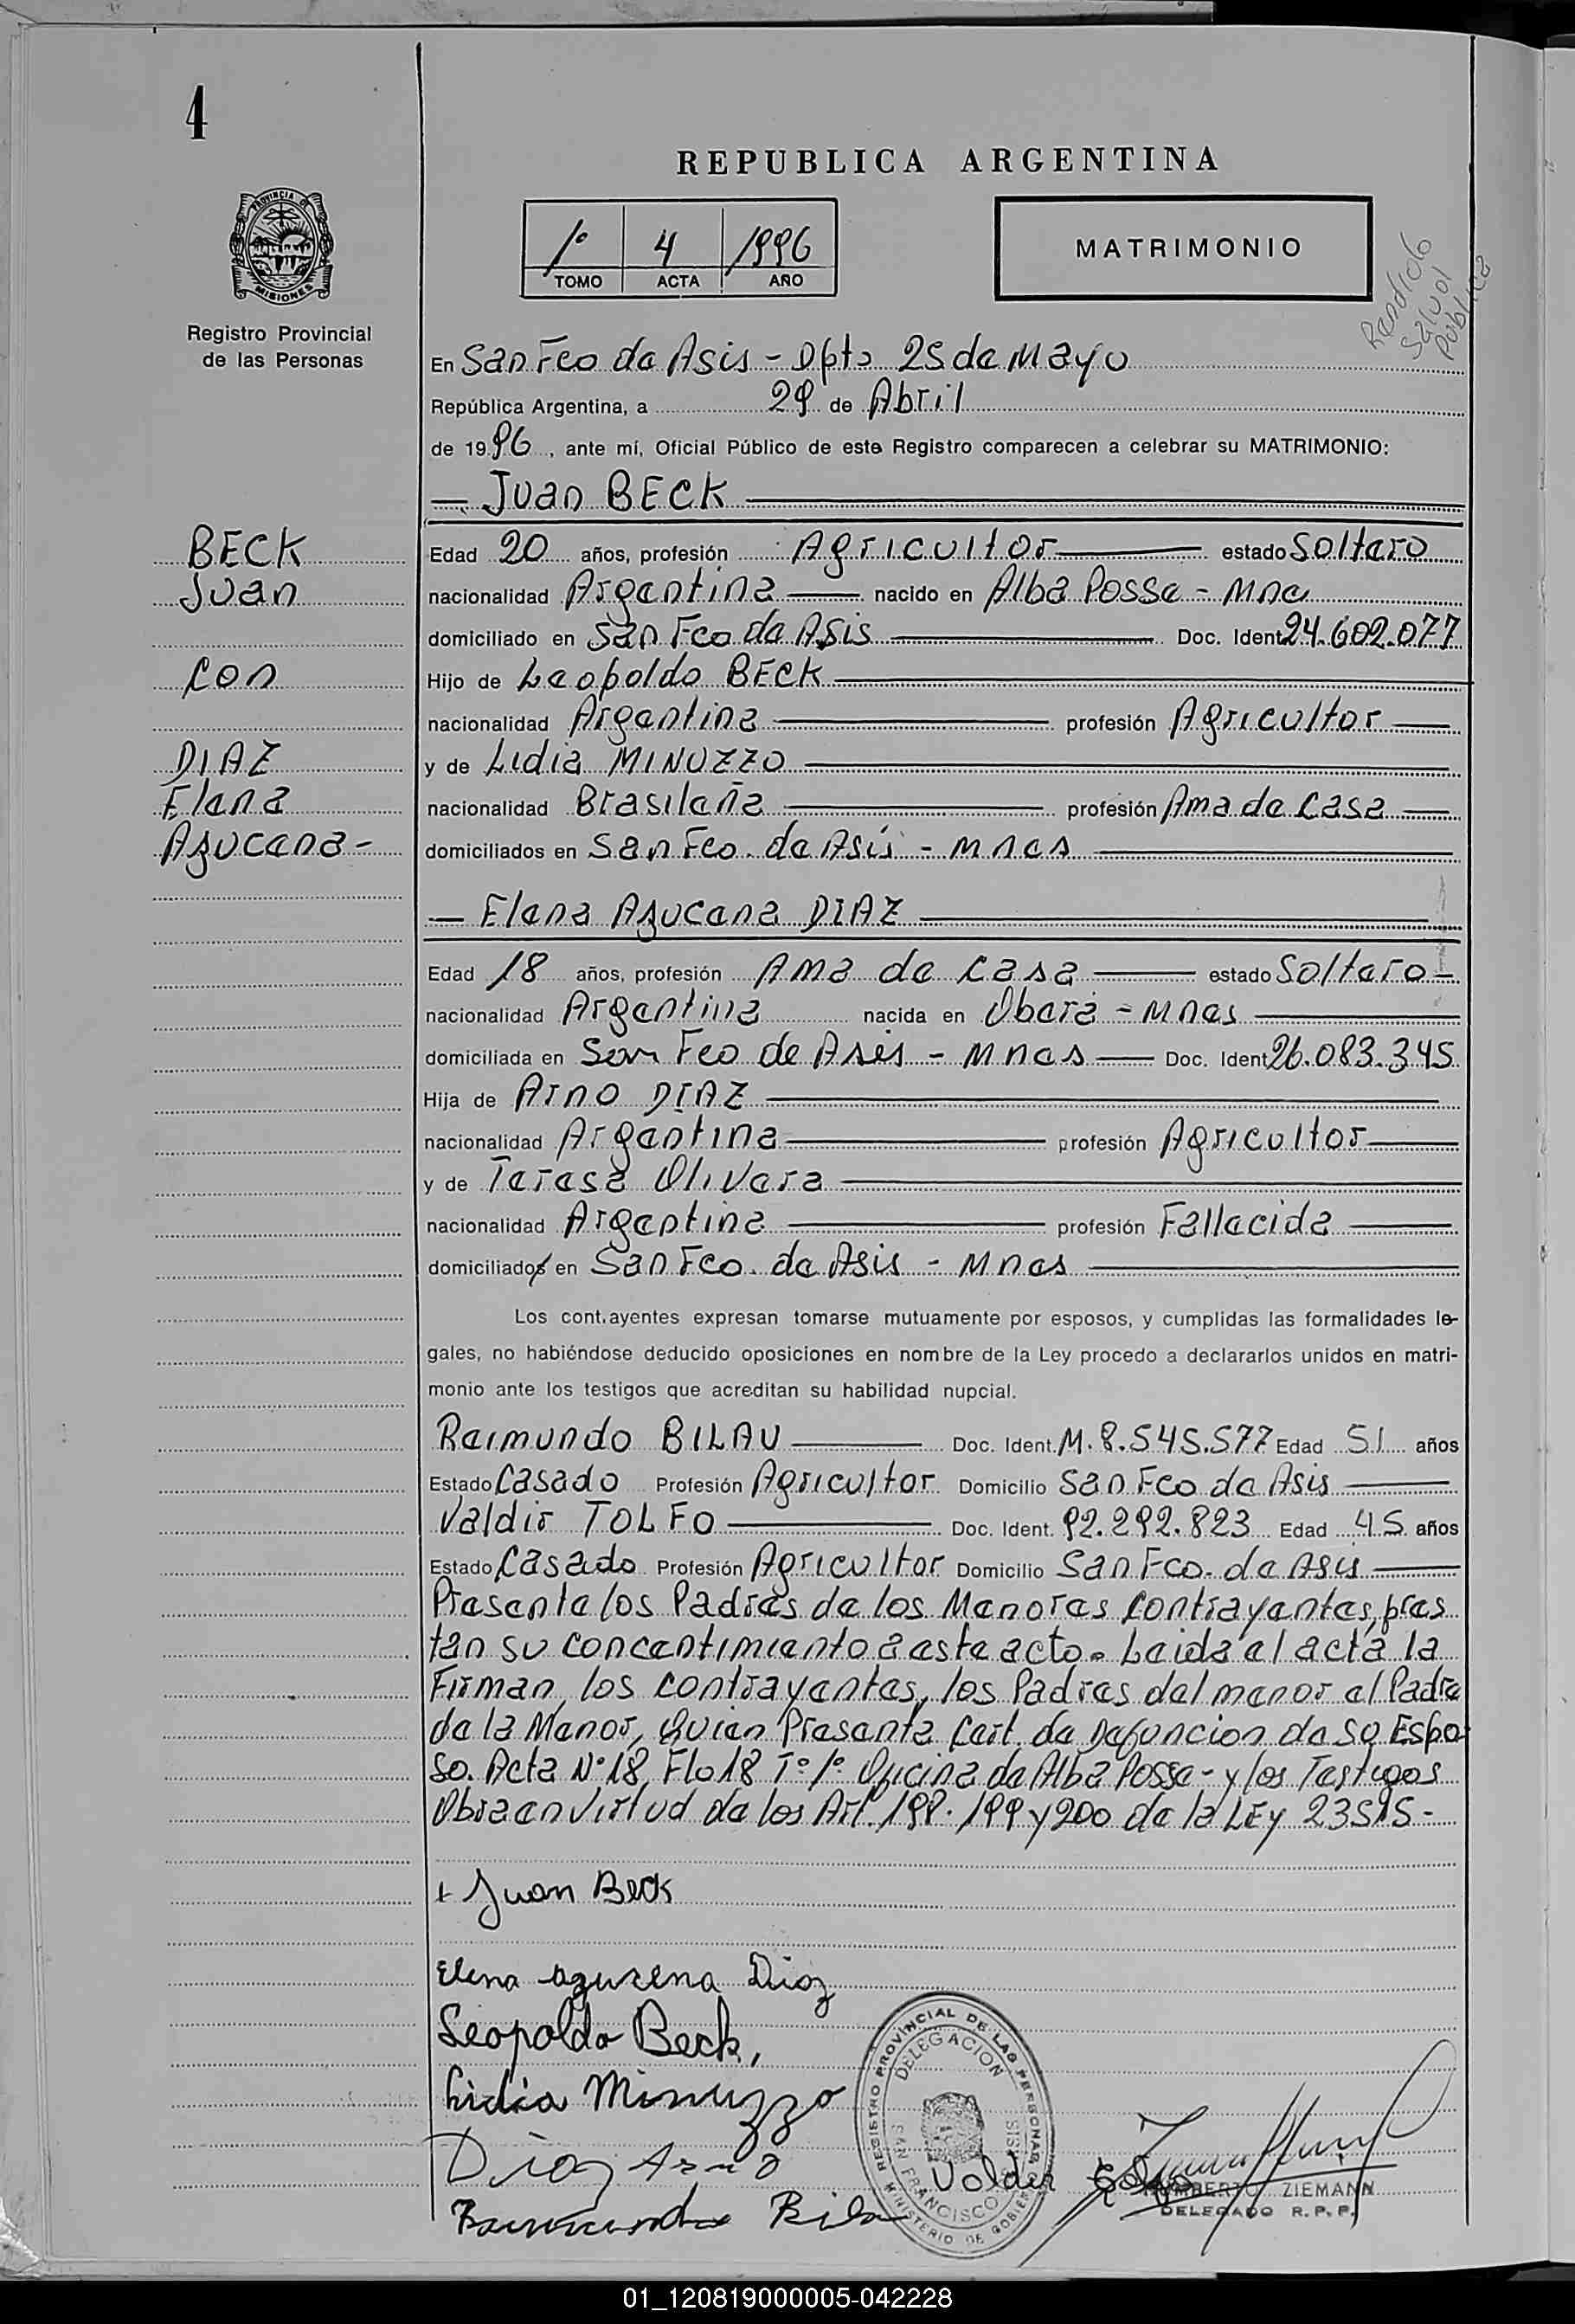 4
REPUBLICA ARGENTINA
PROVINCIA DE MISIONES
1º 4 1996
TOMO ACTA AÑO
MATRIMONIO
Rendido
Salud
Publica
Registro Provincial
de las Personas
En San Fco de Asis - Dpto 25 de Mayo
República Argentina, a 29 de Abril
de 1996, ante mí, Oficial Público de este Registro comparecen a celebrar su MATRIMONIO:
— Juan BECK
BECK
Juan
con
DIAZ
Elena
Azucena-
Edad 20 años, profesión Agricultor estado Soltero
nacionalidad Argentina nacido en Alba Posse - Mnes
domiciliado en San Fco de Asis Doc. Ident 24.602.077
Hijo de Leopoldo BECK
nacionalidad Argentina profesión Agricultor
y de Lidia MINUZZO
nacionalidad Brasileña profesión Ama de Casa
domiciliados en San Fco. de Asis - Mnes
— Elena Azucena DIAZ
Edad 18 años, profesión Ama de Casa estado Soltero
nacionalidad Argentina nacida en Oberá - Mnes
domiciliada en San Fco de Asis - Mnes Doc. Ident 26.083.345
Hija de Arno DIAZ
nacionalidad Argentina profesión Agricultor
y de Teresa Olivera
nacionalidad Argentina profesión Fallecida
domiciliados en San Fco. de Asis - Mnes
Los cont.ayentes expresan tomarse mutuamente por esposos, y cumplidas las formalidades le-
gales, no habiéndose deducido oposiciones en nombre de la Ley procedo a declararlos unidos en matri-
monio ante los testigos que acreditan su habilidad nupcial.
Raimundo BILAU Doc. Ident. M.8.545.577 Edad 51 años
Estado Casado Profesión Agricultor Domicilio San Fco de Asis
Valdir TOLFO Doc. Ident. 92.292.823 Edad 45 años
Estado Casado Profesión Agricultor Domicilio San Fco. de Asis
Presente los Padres de los Menores contrayentes, pres
tan su concentimiento a este acto. Leida el acta la
Firman, los contrayentes, los Padres del menor el Padre
de la Menor, Quien Presenta Cert. de Defuncion de su Espo
so. Acta Nº 18, Flo 18 Tº 1º Oficina de Alba Posse - y los Testigos
Obra en virtud de los Art. 198. 199 y 200 de la LEY 23515-
+ Juan Beck
Elena azucena Diaz
Leopoldo Beck,
Lidia Minuzzo
Diaz Arno
Raimundo Bila
Valdir Tolfo
REGISTRO PROVINCIAL DE LAS PERSONAS
DELEGACION
SAN FRANCISCO DE ASIS
MINISTERIO DE GOBIERNO
HUMBERTO ZIEMANN
DELEGADO R.P.P.
01_120819000005-042228